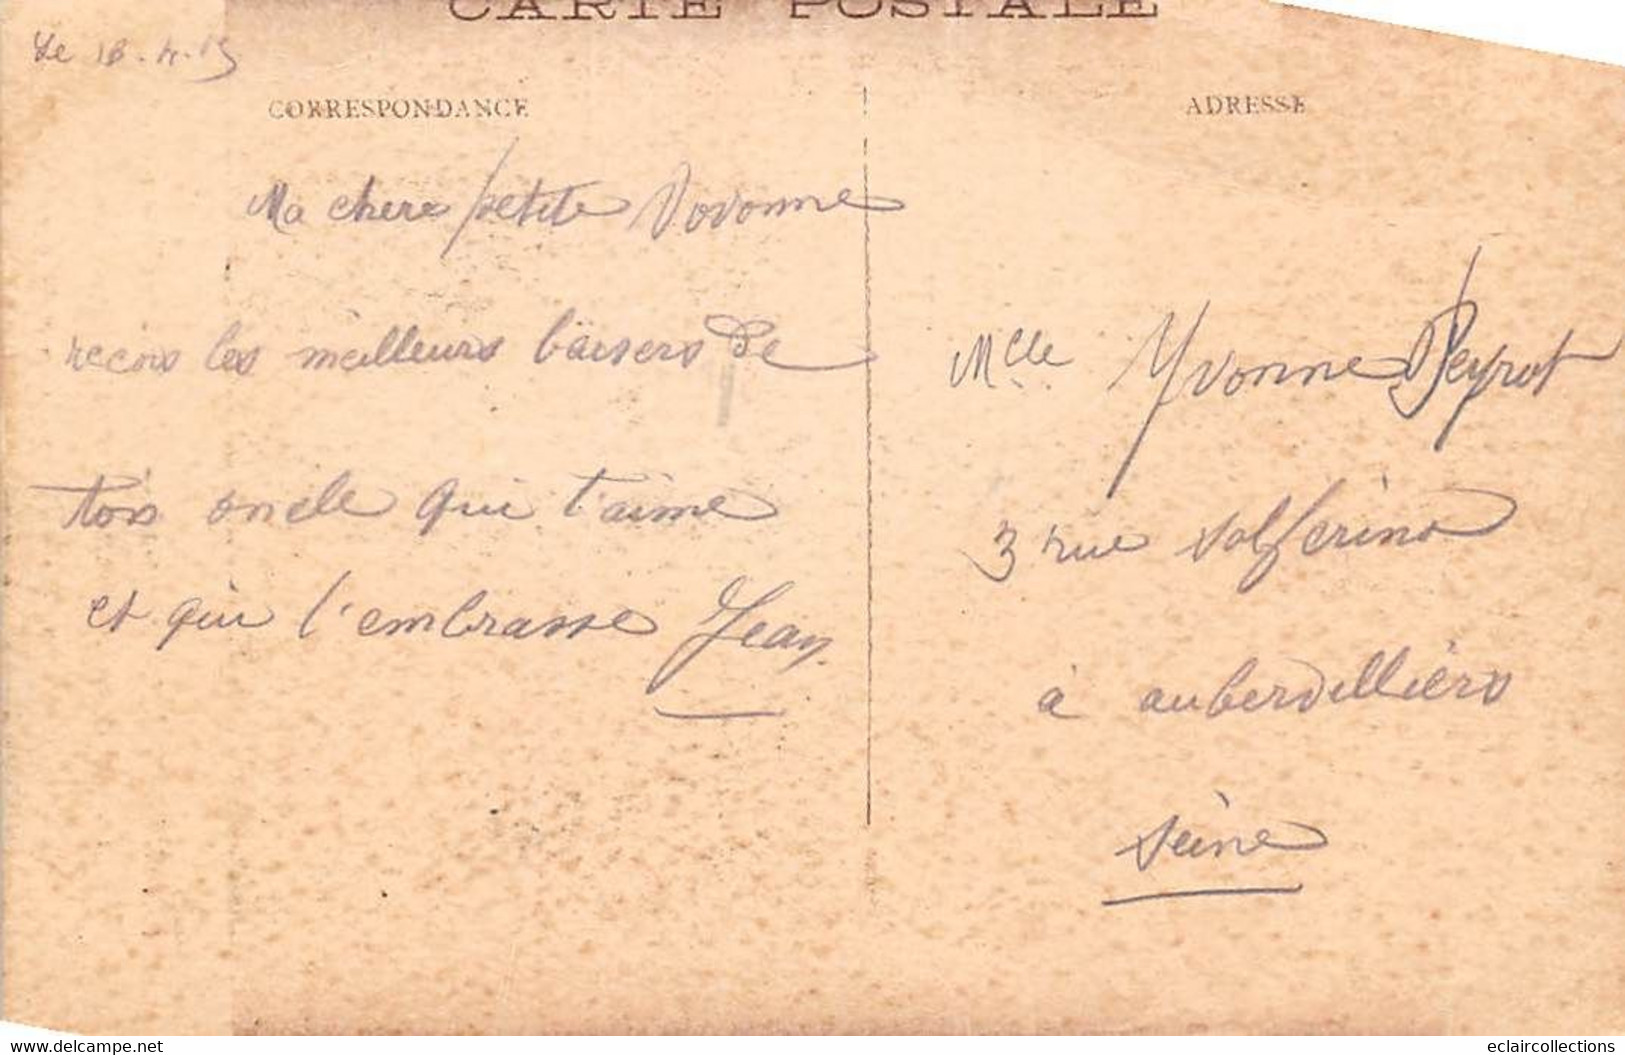 CARTE POSTALE
Le 18.4.15
CORRESPONDANCE
Ma chere petite Vovonne
recois les meilleurs baisers de
ton oncle qui t'aime
et qui t'embrasse Jean
ADRESSE
Mlle Yvonne Peyrot
3 rue Solferino
à aubervilliers
Seine
www.delcampe.net
eclaircollections